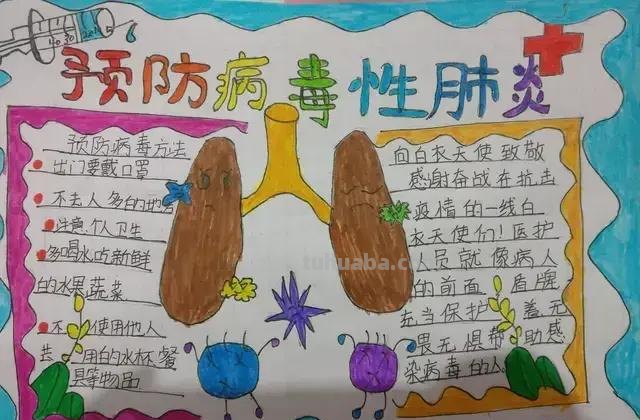 预防病毒性肺炎
预防病毒方法
出门要戴口罩
不去人多的地方
注意个人卫生
多喝水吃新鲜
的水果蔬菜
不 使用他人
共 用的水杯餐
具等物品
向白衣天使致敬
感谢奋战在抗击
疫情的一线白
衣天使们!医护
人员就像病人
的前面 盾牌
充当保护 着无
畏无惧帮 助感
染病毒的人
tuhuaba.c